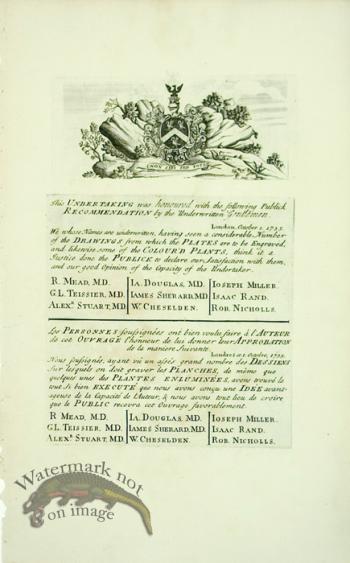 NON SIBI SED TOTI
This UNDERTAKING was honoured with the following Publick
RECOMMENDATION by the Underwritten Gentlemen.
London, October 1. 1735.
We whose Names are underwritten, having seen a considerable Number
of the DRAWINGS from which the PLATES are to be Engraved,
and likewise some of the COLOUR'D PLANTS, think it a
Justice done the PUBLICK to declare our Satisfaction with them,
and our good Opinion of the Capacity of the Undertaker.
R. MEAD, M.D. IA. DOUGLAS, M.D. IOSEPH MILLER.
G.L. TEISSIER, M.D. IAMES SHERARD, M.D. ISAAC RAND.
ALEXR. STUART, M.D. W. CHESELDEN. ROB. NICHOLLS.
Les PERSONNES soussignées ont bien voulu faire à l'AUTEUR
de cet OUVRAGE l'honneur de lui donner leur APPROBATION
de la maniere Suivante.
Londres 1. Octobre, 1735.
Nous soussignés, ayant vû un assés grand nombre des DESSEINS
Sur lesquels on doit graver les PLANCHES, de même que
quelques unes des PLANTES ENLUMINÉES, avons trouvé le
tout Si bien EXECUTÉ que nous avons conçu une IDÉE avan-
ageuse de la Capacité de l'Auteur, & nous avons tout lieu de croire
que le PUBLIC recevra cet Ouvrage favorablement.
R. MEAD, M.D. IA. DOUGLAS, M.D. IOSEPH MILLER.
G.L. TEISSIER, M.D. IAMES SHERARD, M.D. ISAAC RAND.
ALEXR. STUART, M.D. W. CHESELDEN. ROB. NICHOLLS.
Watermark not
on image